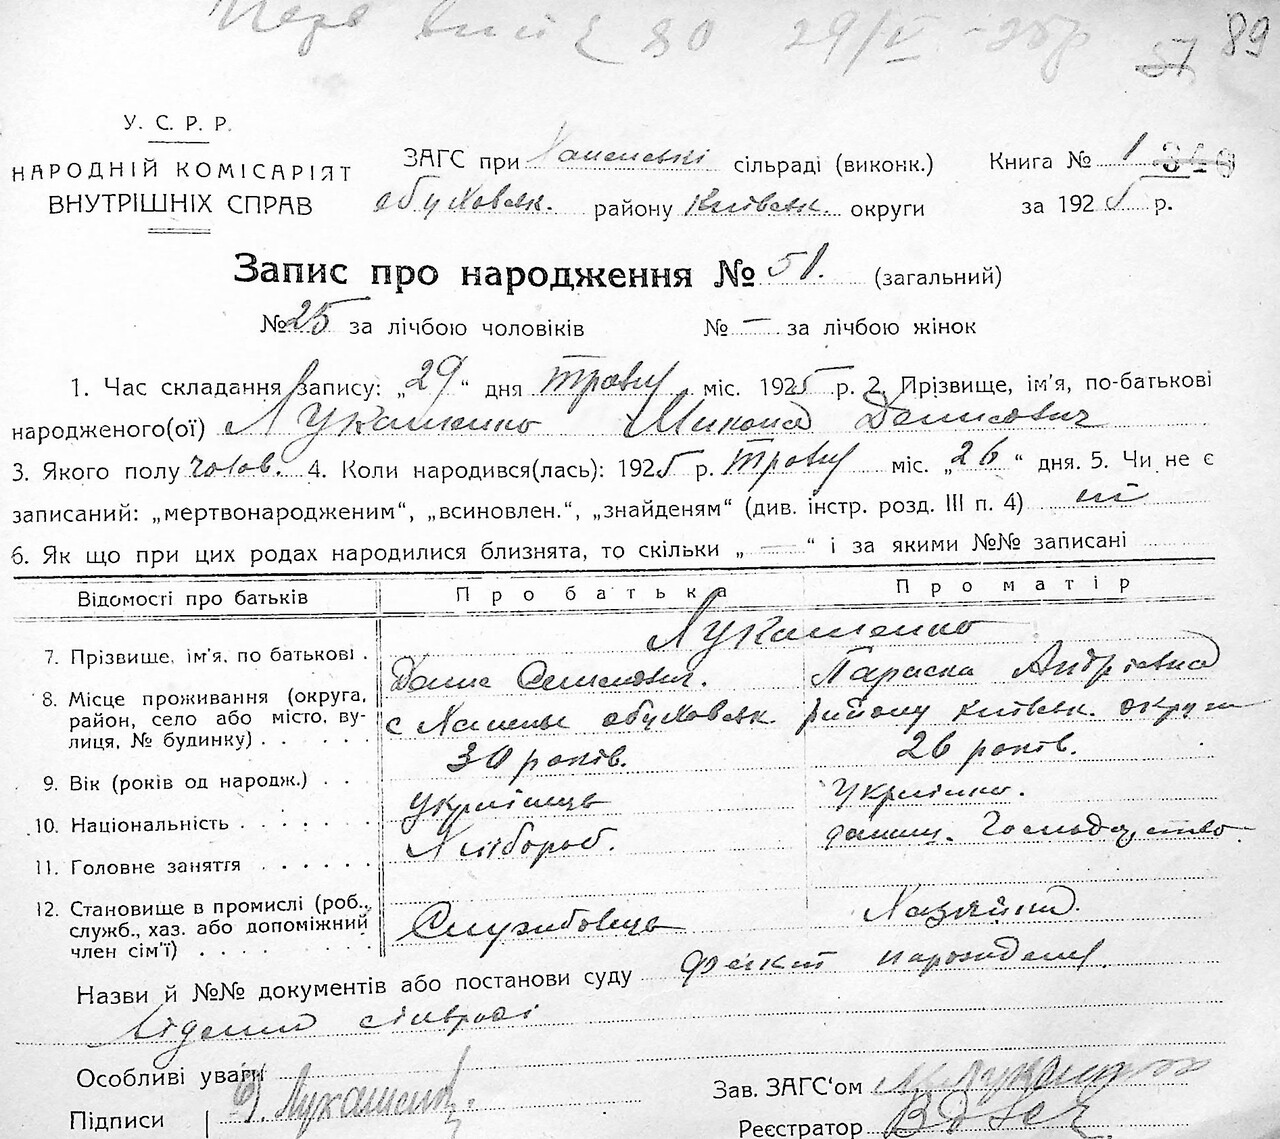 29/V - 25 р
57 89
У. С. Р. Р.
НАРОДНІЙ КОМІСАРІЯТ
ВНУТРІШНІХ СПРАВ
ЗАГС при сільраді (виконк.)
обуховськ. району Київськ. округи
Книга № 1 348
за 1925 р.
Запис про народження № 51. (загальний)
№ 25 за лічбою чоловіків № — за лічбою жінок
1. Час складання запису: „29“ дня травня міс. 1925 р. 2. Прізвище, ім'я, по-батькові
народженого(ої) Лукашенко Микола Данисович
3. Якого полу чолов. 4. Коли народився(лась): 1925 р. травня міс. „26“ дня. 5. Чи не є
записаний: „мертвонародженим“, „всиновлен.“, „знайденям“ (див. інстр. розд. III п. 4) ні
6. Як що при цих родах народилися близнята, то скільки „—“ і за якими №№ записані
Відомості про батьків Про батька Про матір
Лукашенко
7. Прізвище, ім'я, по батькові . Данис Семенович. Параска Андріївна
8. Місце проживання (округа, район, село або місто, вулиця, № будинку) . . . . . с обуховськ. району київськ. округи
9. Вік (років од народж.) . . . 30 років. 26 років.
10. Національність . . . . . . . українець українка.
11. Головне заняття . . . . . . Хлібороб. домашн. господарство
12. Становище в промислі (роб., служб., хаз. або допоміжний член сім'ї) . . . . . Службовець Хазяйка
Назви й №№ документів або постанови суду факт народження
відомий сільраді
Особливі уваги
Підписи Д. Лукашенко.
Зав. ЗАГС'ом
Реєстратор